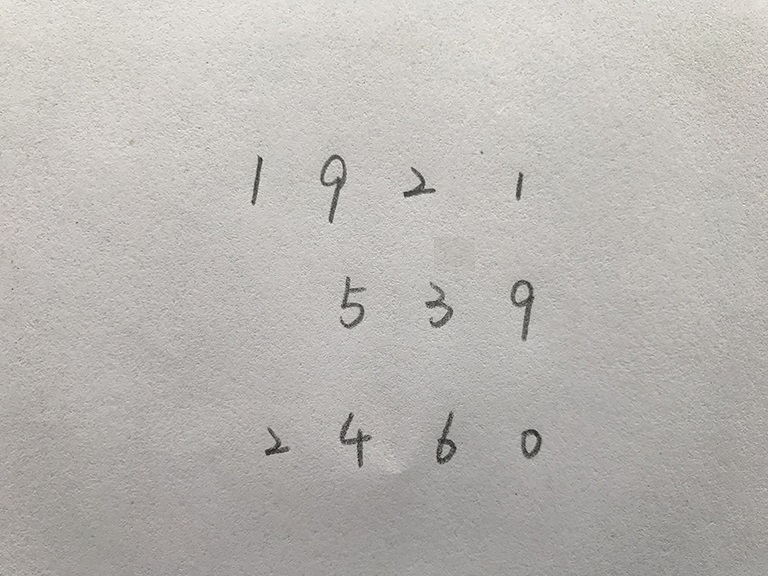 1 9 2 1
5 3 9
2 4 6 0